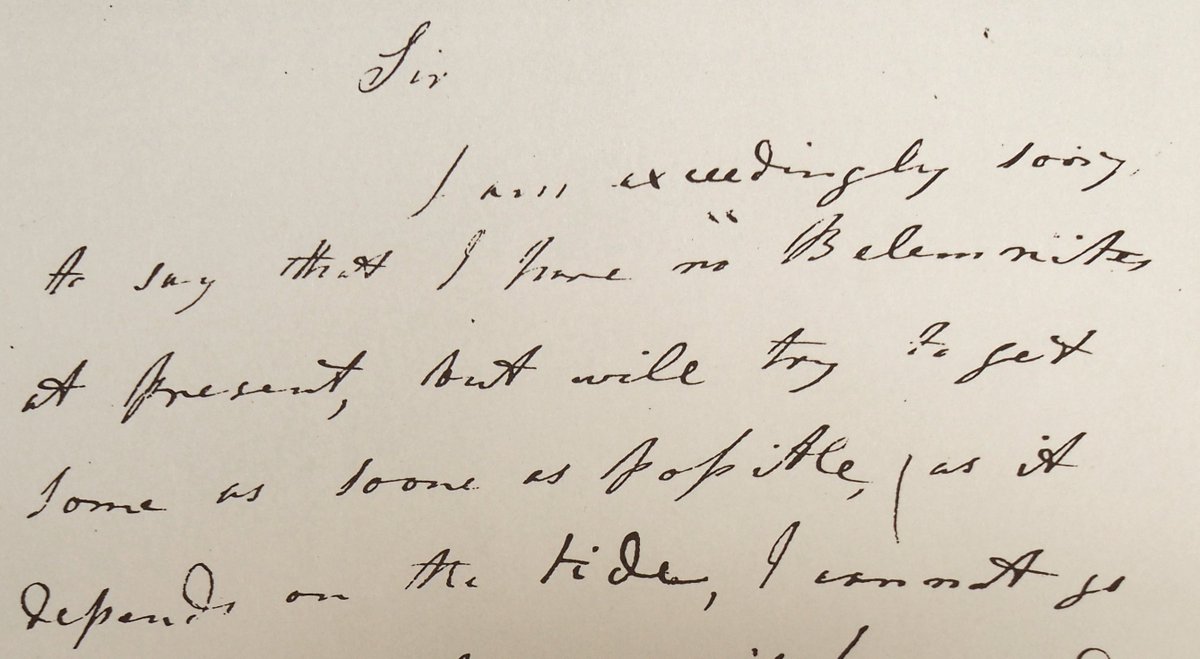 Sir
I am exceedingly sorry
to say that I have no Belemnites
at present, but will try to get
some as soone as possible, (as it
depends on the tide, I cannot go